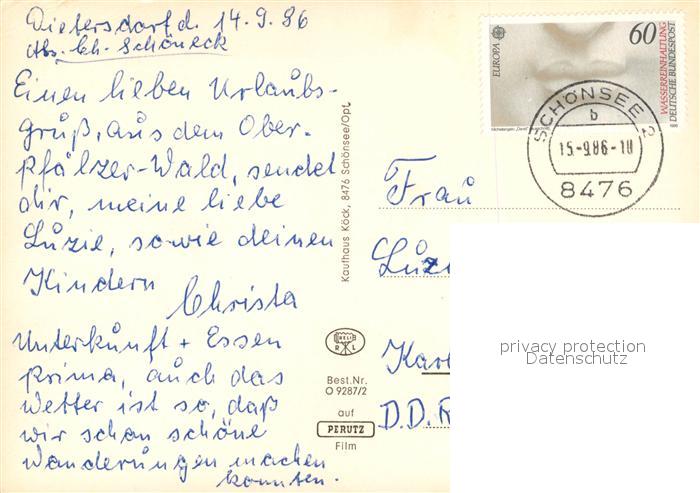 Dietersdorf d. 14.9.86
Abs. Ch. Schöneck
Einen lieben Urlaubs-
gruß, aus dem Ober-
pfälzer-Wald, sendet
dir, meine liebe
Luzie, sowie deinen
Kindern
Christa
Unterkunft + Essen
prima, auch das
Wetter ist so, daß
wir schon schöne
Wanderungen machen
konnten.
Kaufhaus Köck, 8476 Schönsee/Opf.
RL
Best.Nr.
O 9287/2
auf
PERUTZ
Film
EUROPA
60
WASSERREINHALTUNG
DEUTSCHE BUNDESPOST
SCHÖNSEE 2
b
15.-9.86-10
8476
Frau
Luzi
Kar
D.D.R
privacy protection
Datenschutz